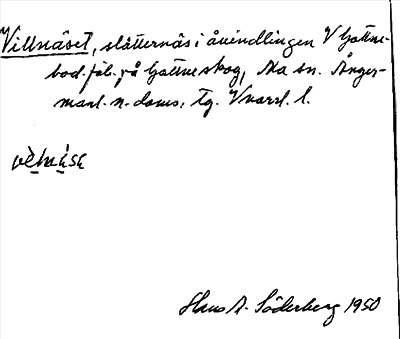 Villnäset, slåtternäs i åvindlingen V Gottne-
bod. fäb. på Gottne skog, Sn. Ånger-
manl. n. doms. tg. Vnorrl. l.
Hans A. Söderberg 1950